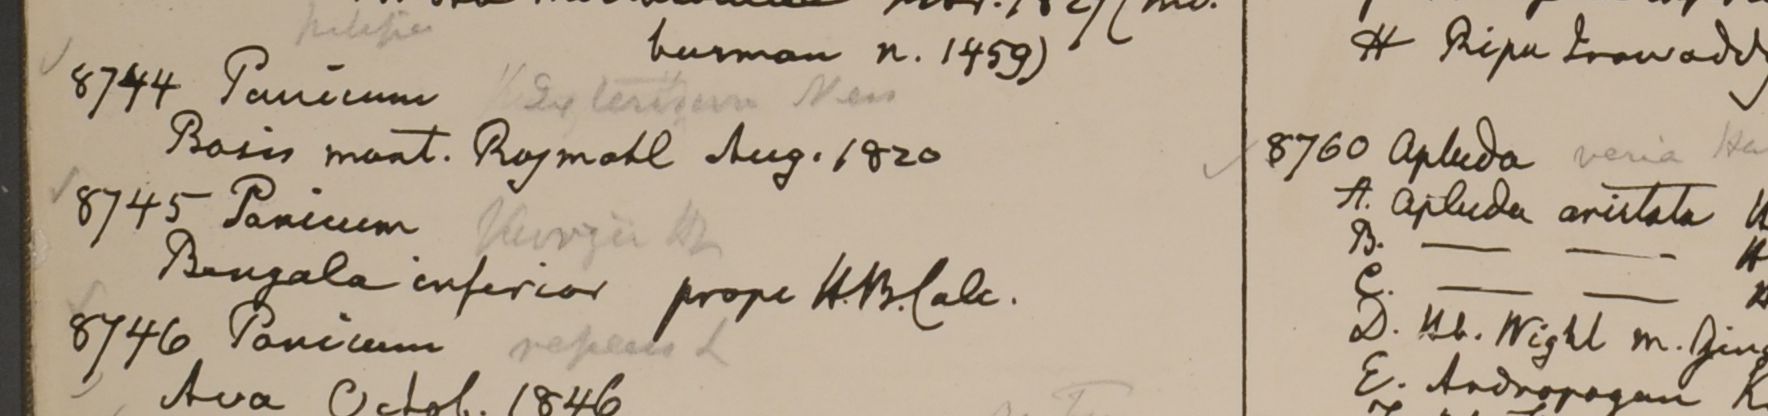 burman n. 1459)
8744 Panicum Nees
Basis mont. Rajmahl Aug. 1820
8745 Panicum
Bengala inferior prope H.B. Calc.
8746 Panicum repens L
Ava Octob. 1846
H Ripa Irawaddy
8760 Apluda varia Ha
A. Apluda aristata
B. — —
C. — —
D. Hb. Wight m. Ging
E. Andropogon K